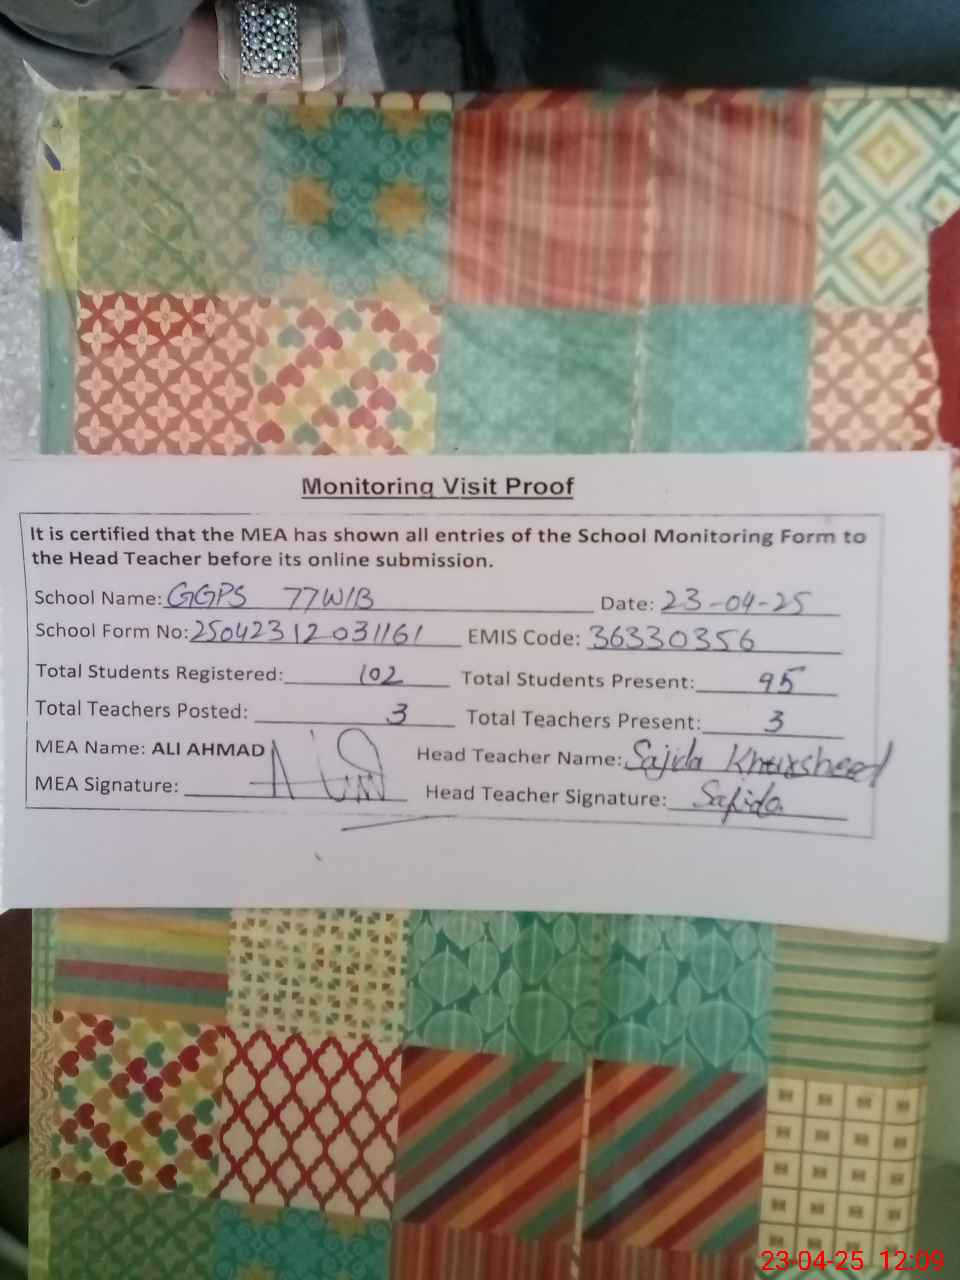 Monitoring Visit Proof
It is certified that the MEA has shown all entries of the School Monitoring Form to
the Head Teacher before its online submission.
School Name: GGPS 77W/B Date: 23-04-25
School Form No: 25042312031161 EMIS Code: 36330356
Total Students Registered: 102 Total Students Present: 95
Total Teachers Posted: 3 Total Teachers Present: 3
MEA Name: ALI AHMAD Head Teacher Name: Sajida Khursheed
MEA Signature: Head Teacher Signature: Sajida
23-04-25 12:09